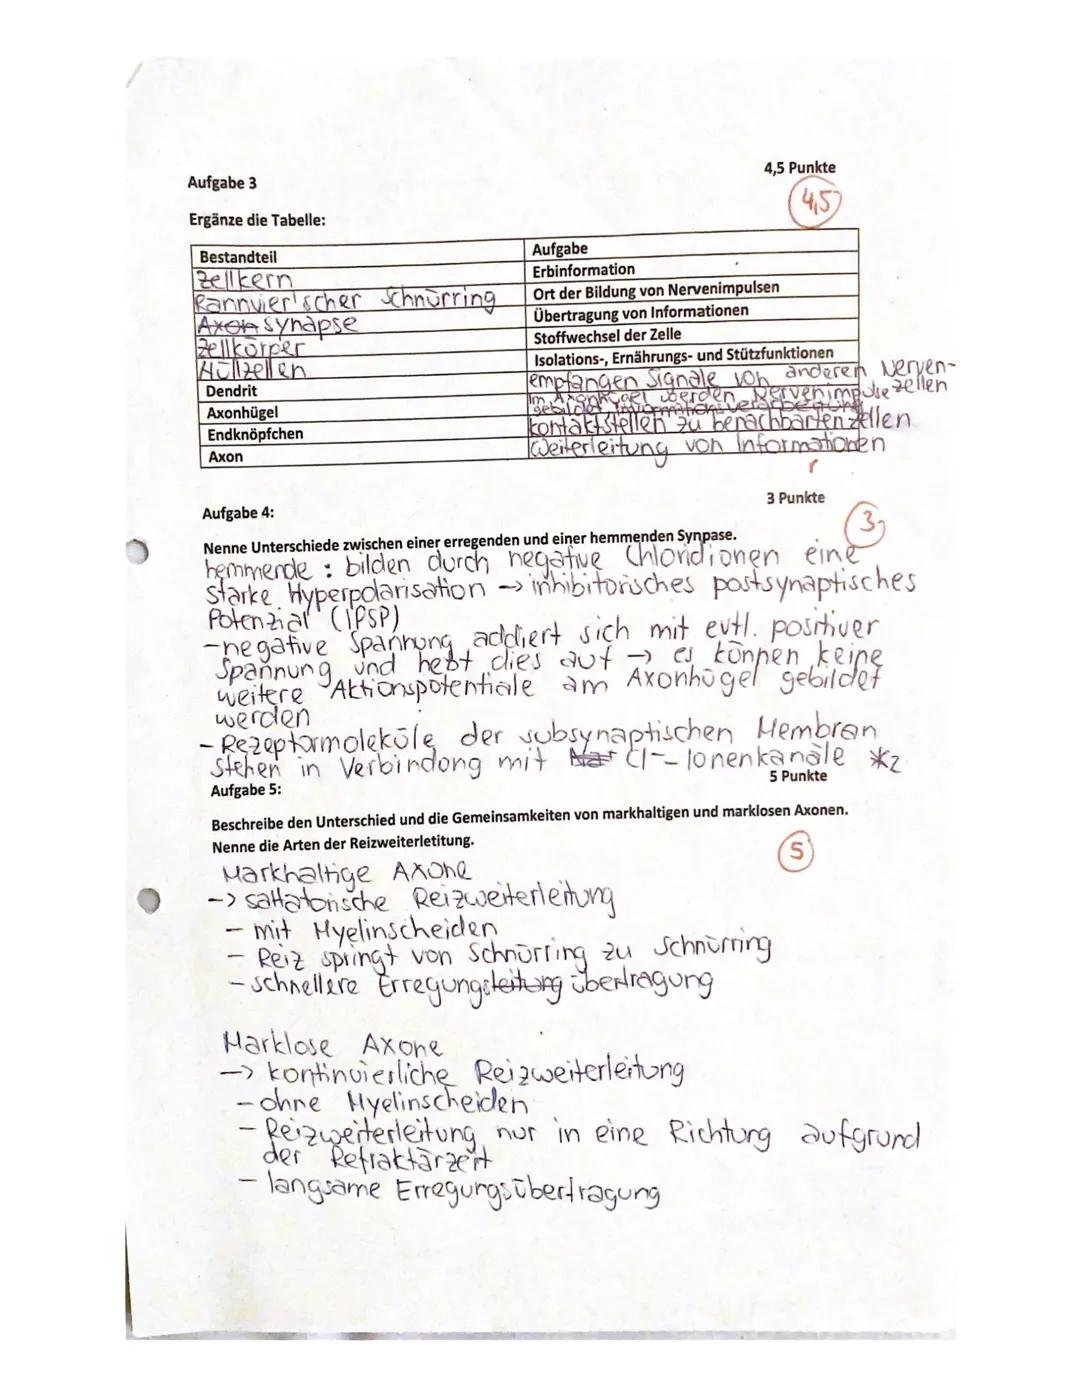 4,5 Punkte
Aufgabe 3
4,5
Ergänze die Tabelle:
Bestandteil Aufgabe
Zellkern Erbinformation
Rannvier'scher Schnürring Ort der Bildung von Nervenimpulsen
Axon synapse Übertragung von Informationen
Zellkörper Stoffwechsel der Zelle
Hüllzellen Isolations-, Ernährungs- und Stützfunktionen
Dendrit empfangen Signale von anderen Nerven-zellen
Axonhügel Im Axonhügel werden Nervenimpulse
gebildet, Informationsverarbeitung
Endknöpfchen Kontaktstellen zu benachbarten Zellen
Axon Weiterleitung von Informationen
r
3 Punkte
Aufgabe 4:
3
Nenne Unterschiede zwischen einer erregenden und einer hemmenden Synpase.
hemmende : bilden durch negative Chloridionen eine
starke Hyperpolarisation -> inhibitorisches postsynaptisches
Potenzial (IPSP)
-negative Spannung addiert sich mit evtl. positiver
Spannung und hebt dies auf -> es können keine
weitere Aktionspotentiale am Axonhügel gebildet
werden
- Rezeptormoleküle der subsynaptischen Membran
stehen in Verbindung mit Na+ Cl- - Ionenkanäle *2
5 Punkte
Aufgabe 5:
Beschreibe den Unterschied und die Gemeinsamkeiten von markhaltigen und marklosen Axonen.
Nenne die Arten der Reizweiterletitung.
5
Markhaltige Axone
-> saltatorische Reizweiterleitung
- mit Myelinscheiden
- Reiz springt von Schnürring zu Schnürring
- schnellere Erregungsleitung übertragung
Marklose Axone
-> kontinuierliche Reizweiterleitung
- ohne Myelinscheiden
- Reizweiterleitung nur in eine Richtung aufgrund
der Refraktärzeit
- langsame Erregungsübertragung